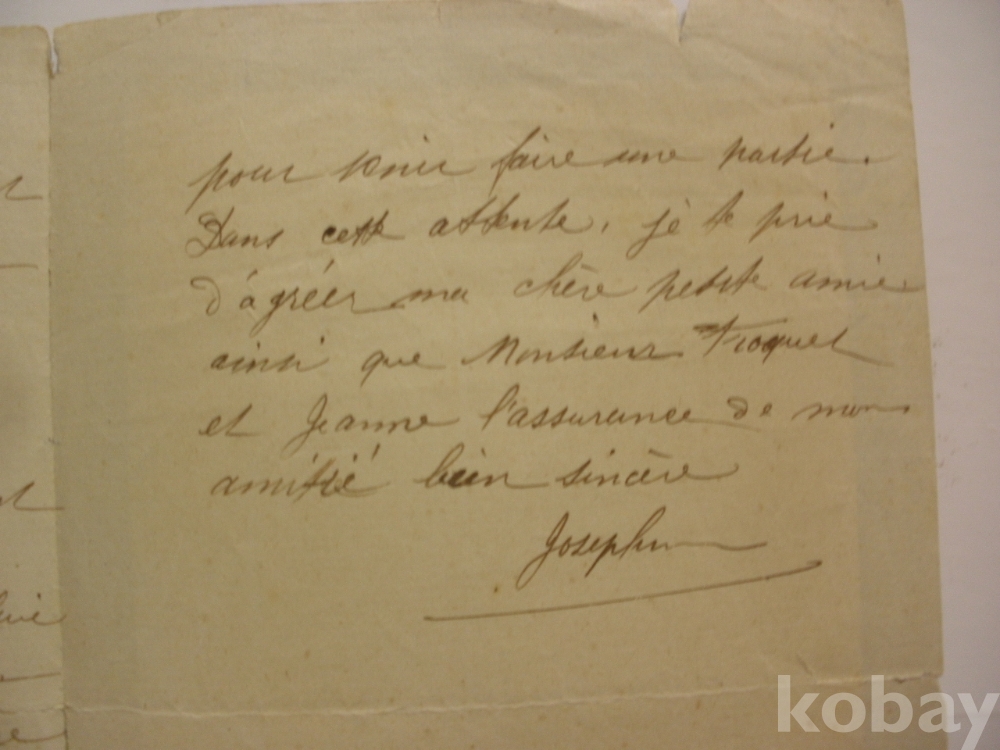 pour venir faire une partie.
Dans cette attente, je te prie
d'agréer ma chère petite amie
ainsi que Monsieur Froquet
et Jeanne l'assurance de mon
amitié bien sincère
Josephine
kobay